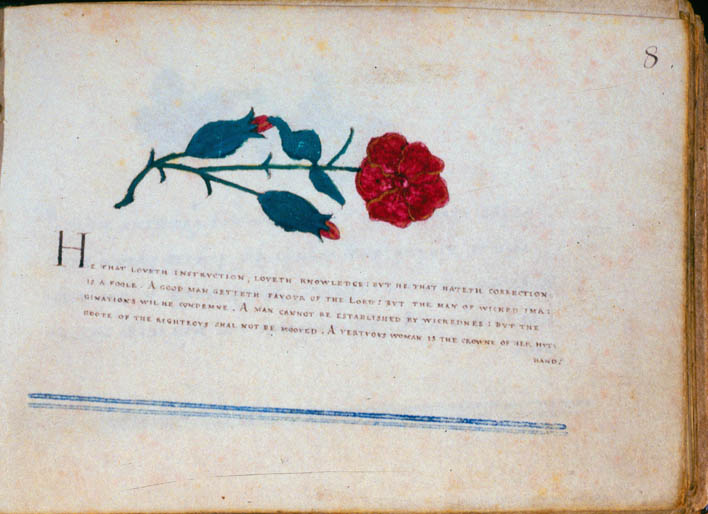 8
HE THAT LOVETH INSTRVCTION, LOVETH KNOWLEDGE: BVT HE THAT HATETH CORRECTION,
IS A FOOLE. A GOOD MAN GETTETH FAVOVR OF THE LORD: BVT THE MAN OF WICKED IMA:
GINATIONS WIL HE CONDEMNE. A MAN CANNOT BE ESTABLISHED BY WICKEDNES: BVT THE
ROOTE OF THE RIGHTEOVS SHAL NOT BE MOOVED. A VERTVOVS WOMAN IS THE CROWNE OF HER HVS:
BAND: